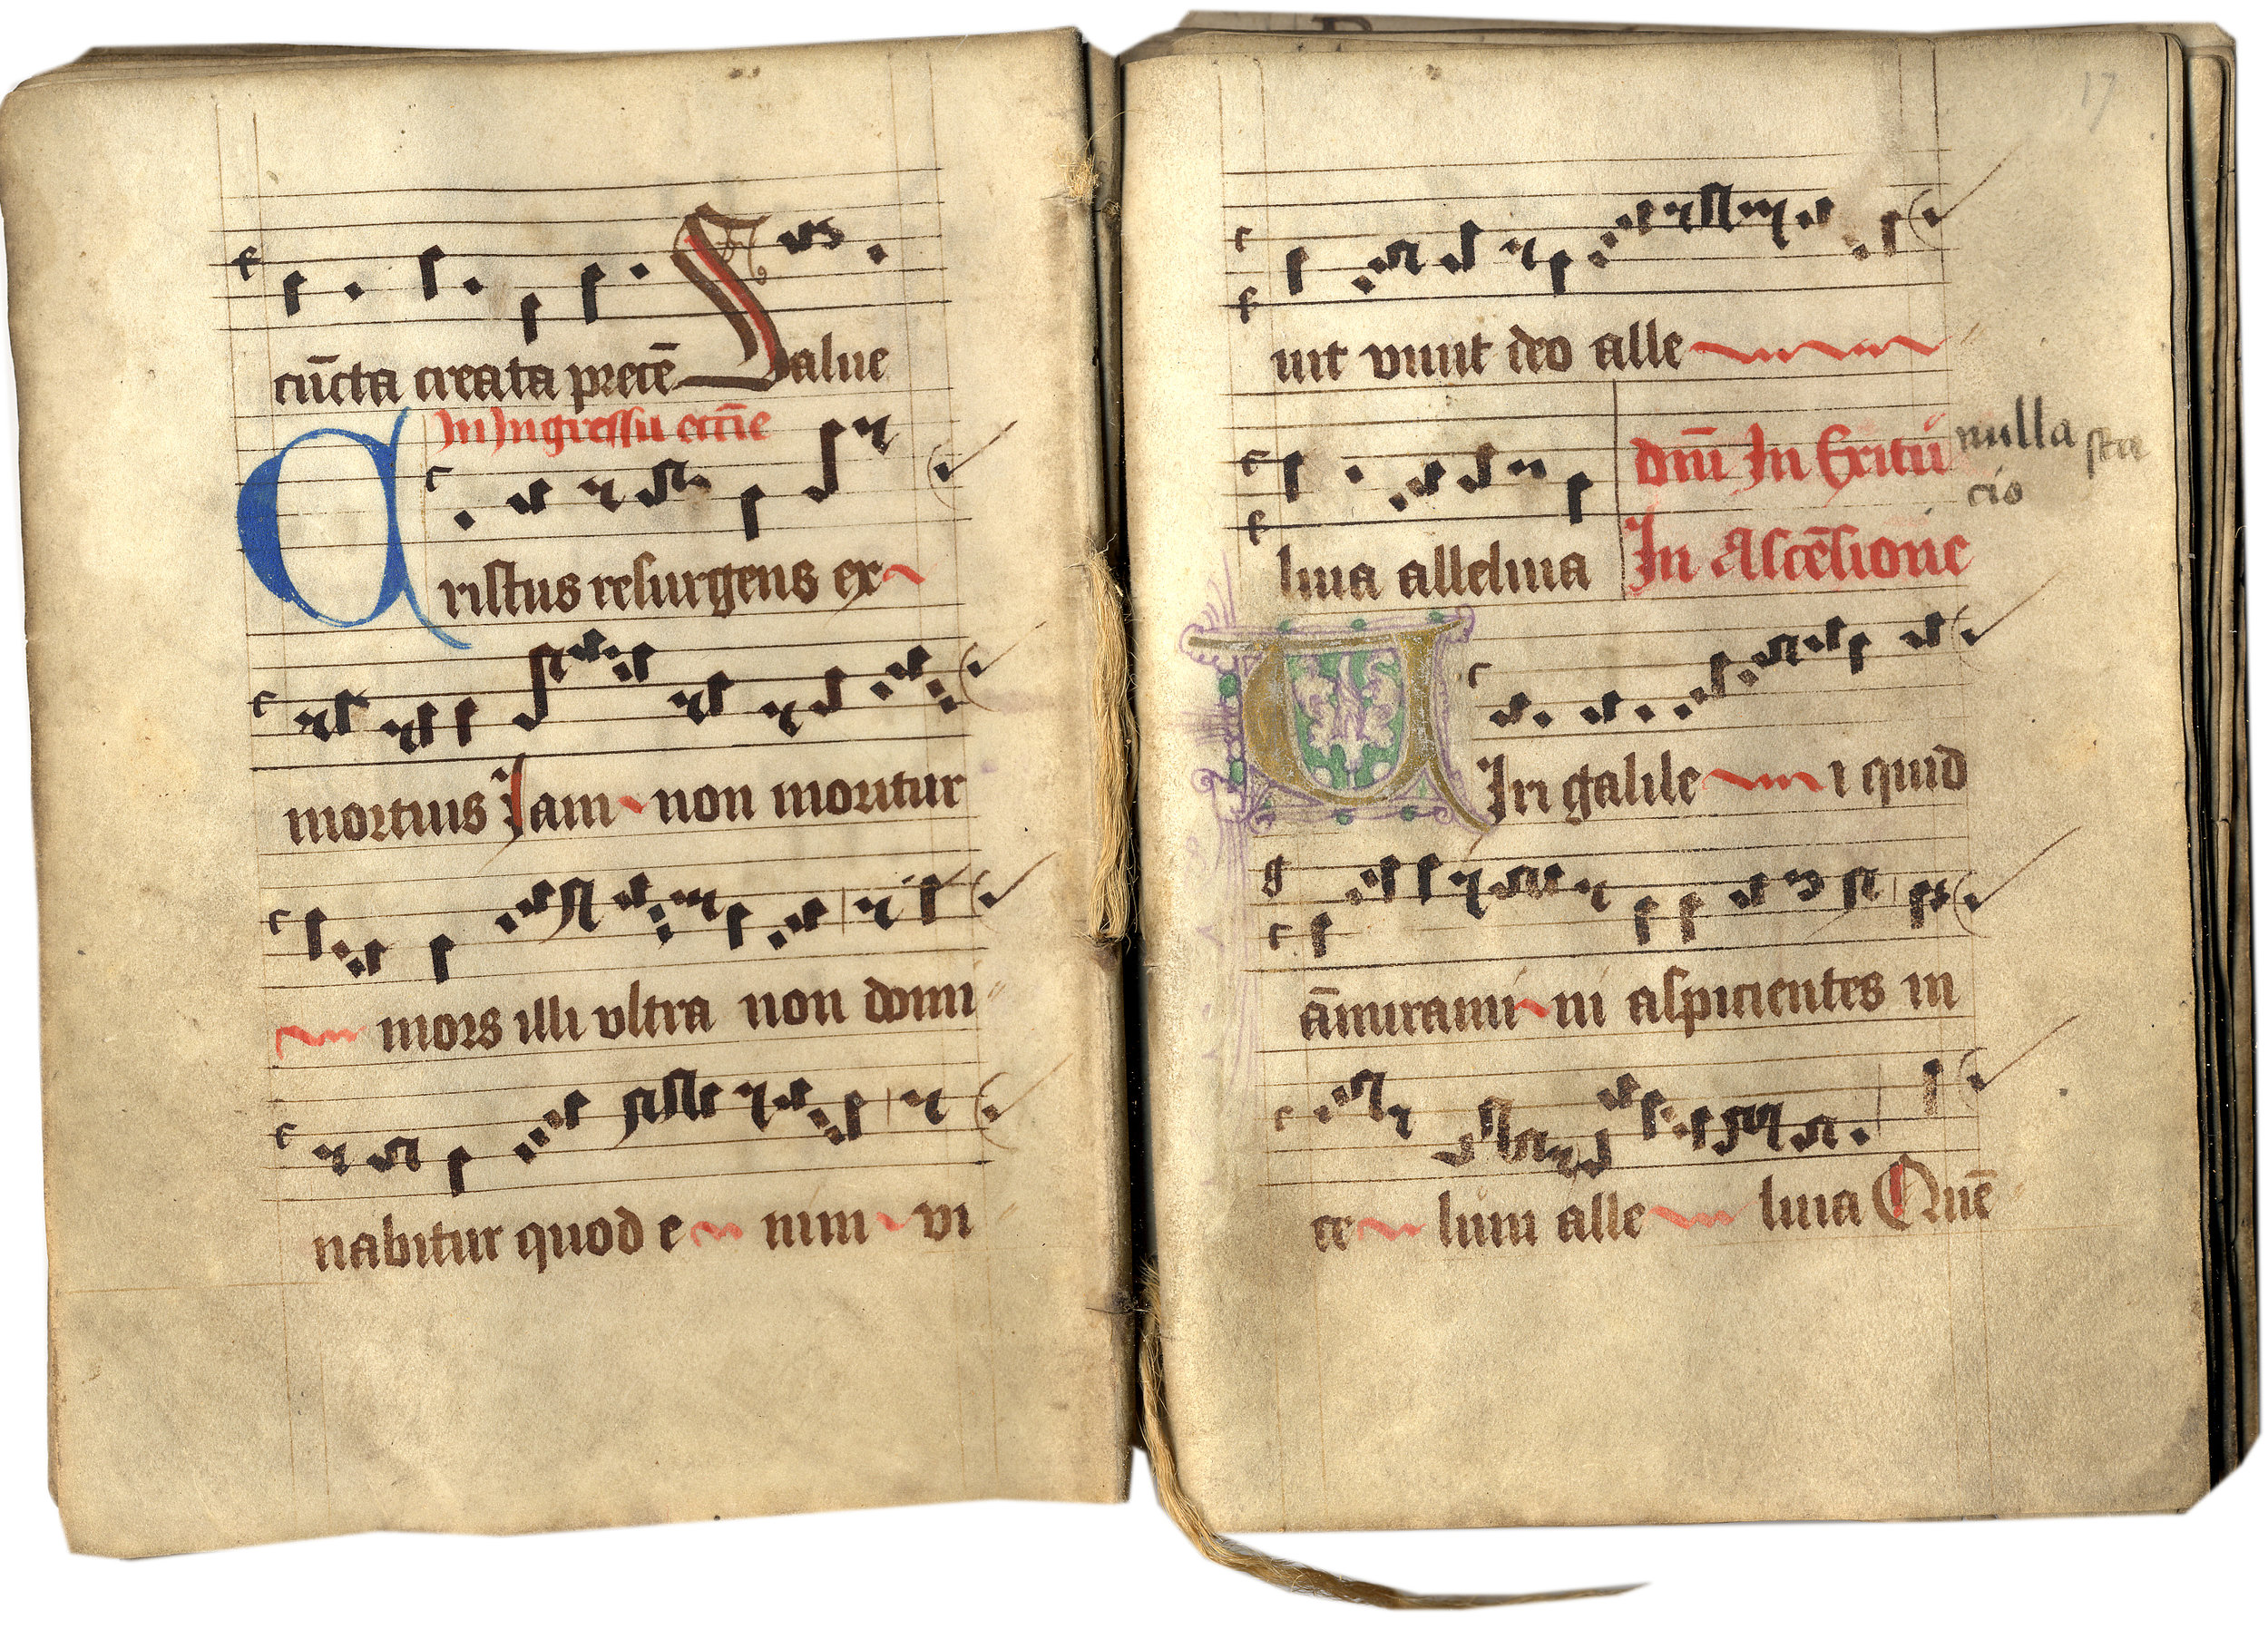 cūcta creata precē Salue
In Ingressu eccīe
Cristus resurgens ex
mortuus iam non moritur
mors illi vltra non domi
nabitur quod e nim vi
17
uit viuit deo alle
luia alleluia
dnī In Exitū
nulla sta
cio
In Ascēsione
Uiri galile i quid
āmirami ni aspicientes in
ce lum alle luia Quē